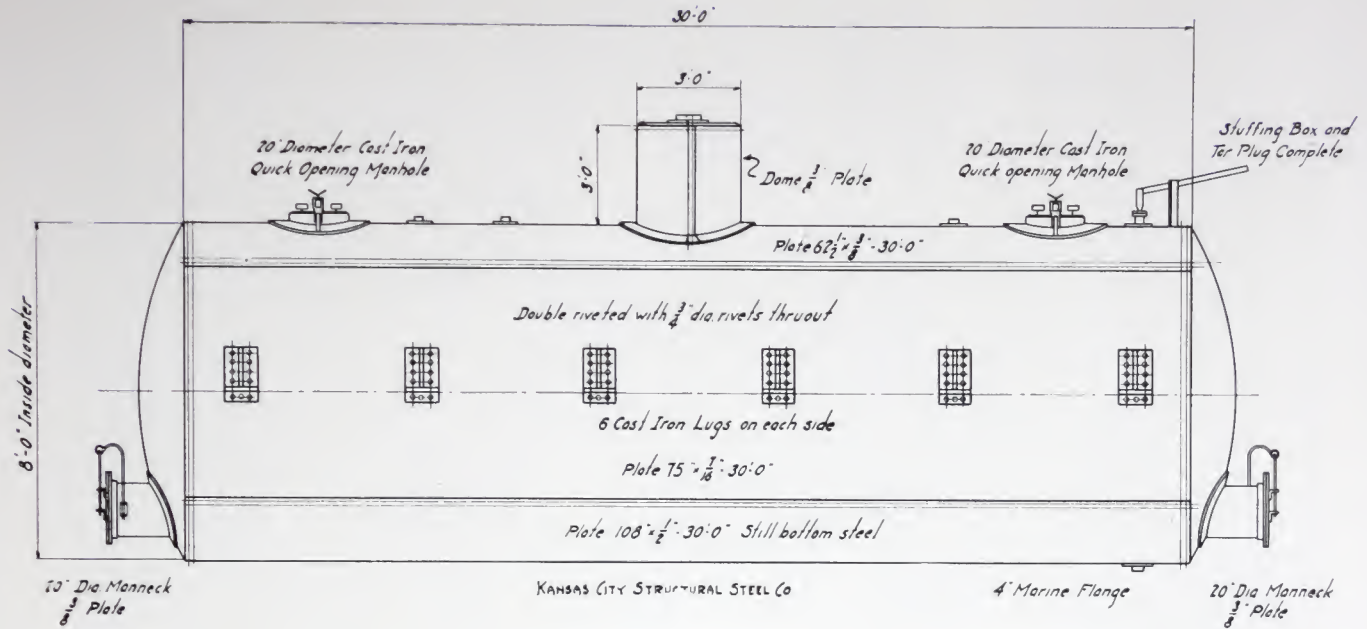 30'-0"
3'-0"
20" Diameter Cast Iron
Quick Opening Manhole
3'-0"
Dome 3/8" Plate
20 Diameter Cast Iron
Quick opening Manhole
Stuffing Box and
Tar Plug Complete
Plate 62 1/2" x 3/8" - 30'-0"
8'-0" Inside diameter
Double riveted with 3/4" dia. rivets thruout
6 Cast Iron Lugs on each side
Plate 75" x 7/16" - 30'-0"
Plate 108" x 1/2" - 30'-0" Still bottom steel
20" Dia. Manneck
3/8" Plate
KANSAS CITY STRUCTURAL STEEL CO
4" Marine Flange
20" Dia Manneck
3/8" Plate